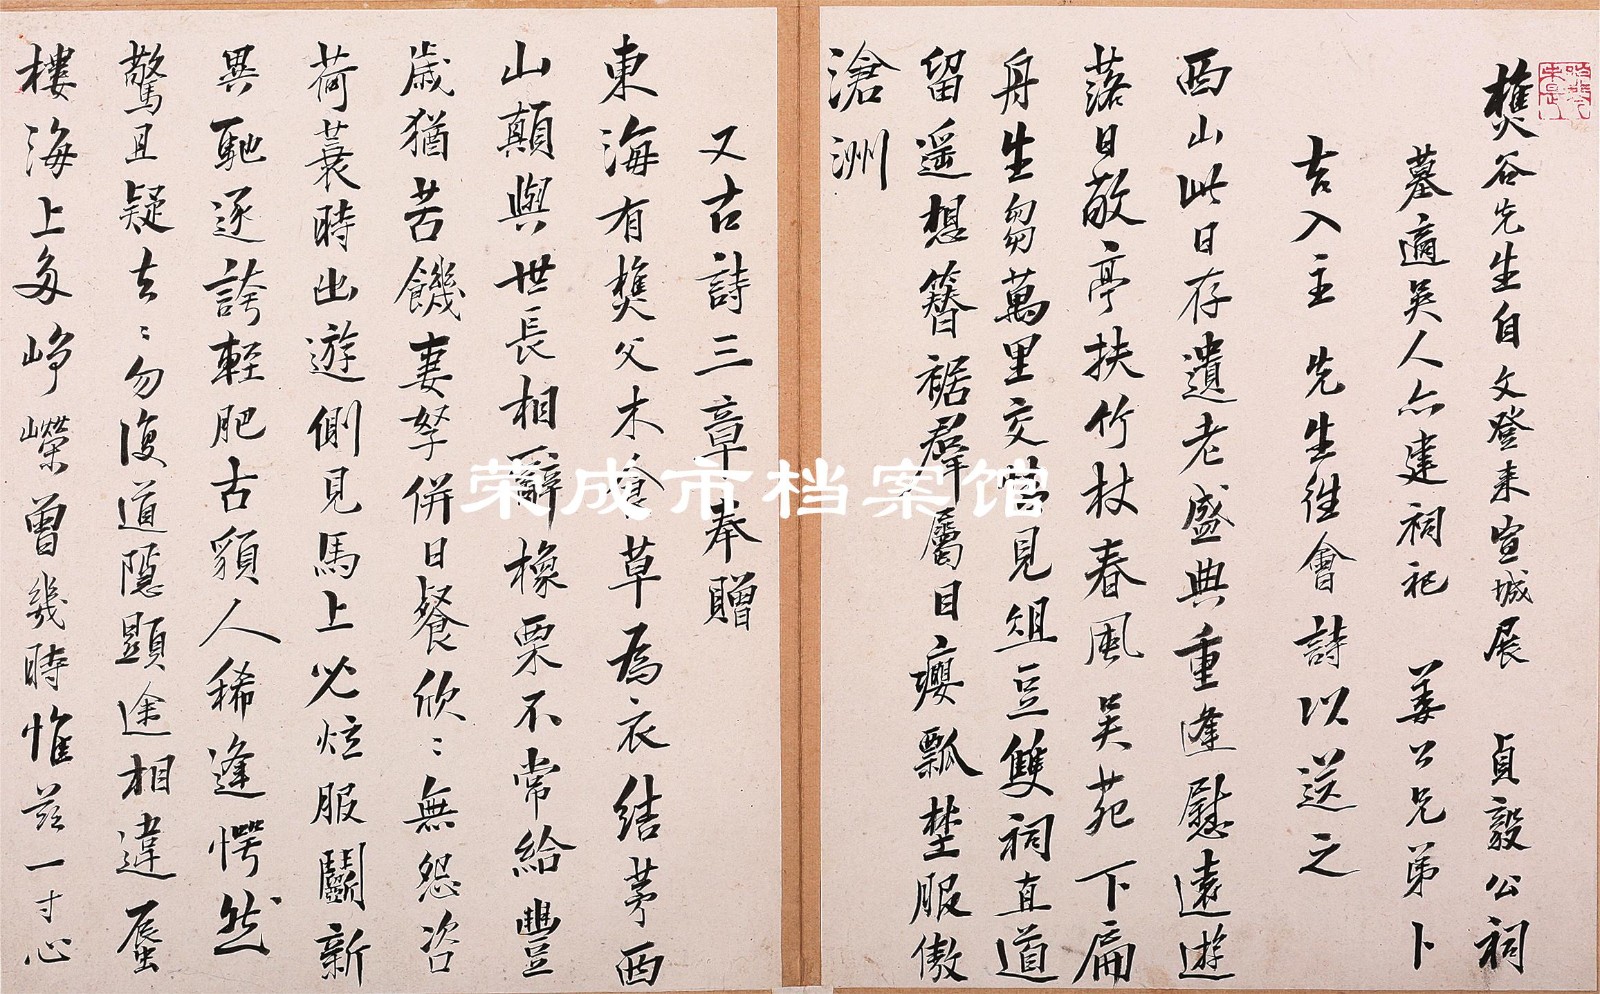 樵谷先生自文登来宣城展　貞毅公祠
墓適吳人亦建祠祀　姜公兄弟卜
吉入主　先生往會詩以送之
西山此日存遺老盛典重逢慰遠遊
落日敬亭扶竹杖春風吳苑下扁
舟生芻萬里交常見俎豆雙祠直道
留遥想簪裾群屬目癭瓢埜服傲
滄洲
又古詩三章奉贈
東海有樵父木食草為衣結茅西
山顛與世長相辭橡栗不常給豐
歲猶苦饑妻孥併日餐欣〻無怨咨
荷蓑時出遊側見馬上必炫服鬭新
異馳逐誇輕肥古貌人稀逢愕然
驚且疑去〻勿復道隱顯途相違蜃
樓海上多崢嶸曾幾時惟茲一寸心
荣成市档案馆